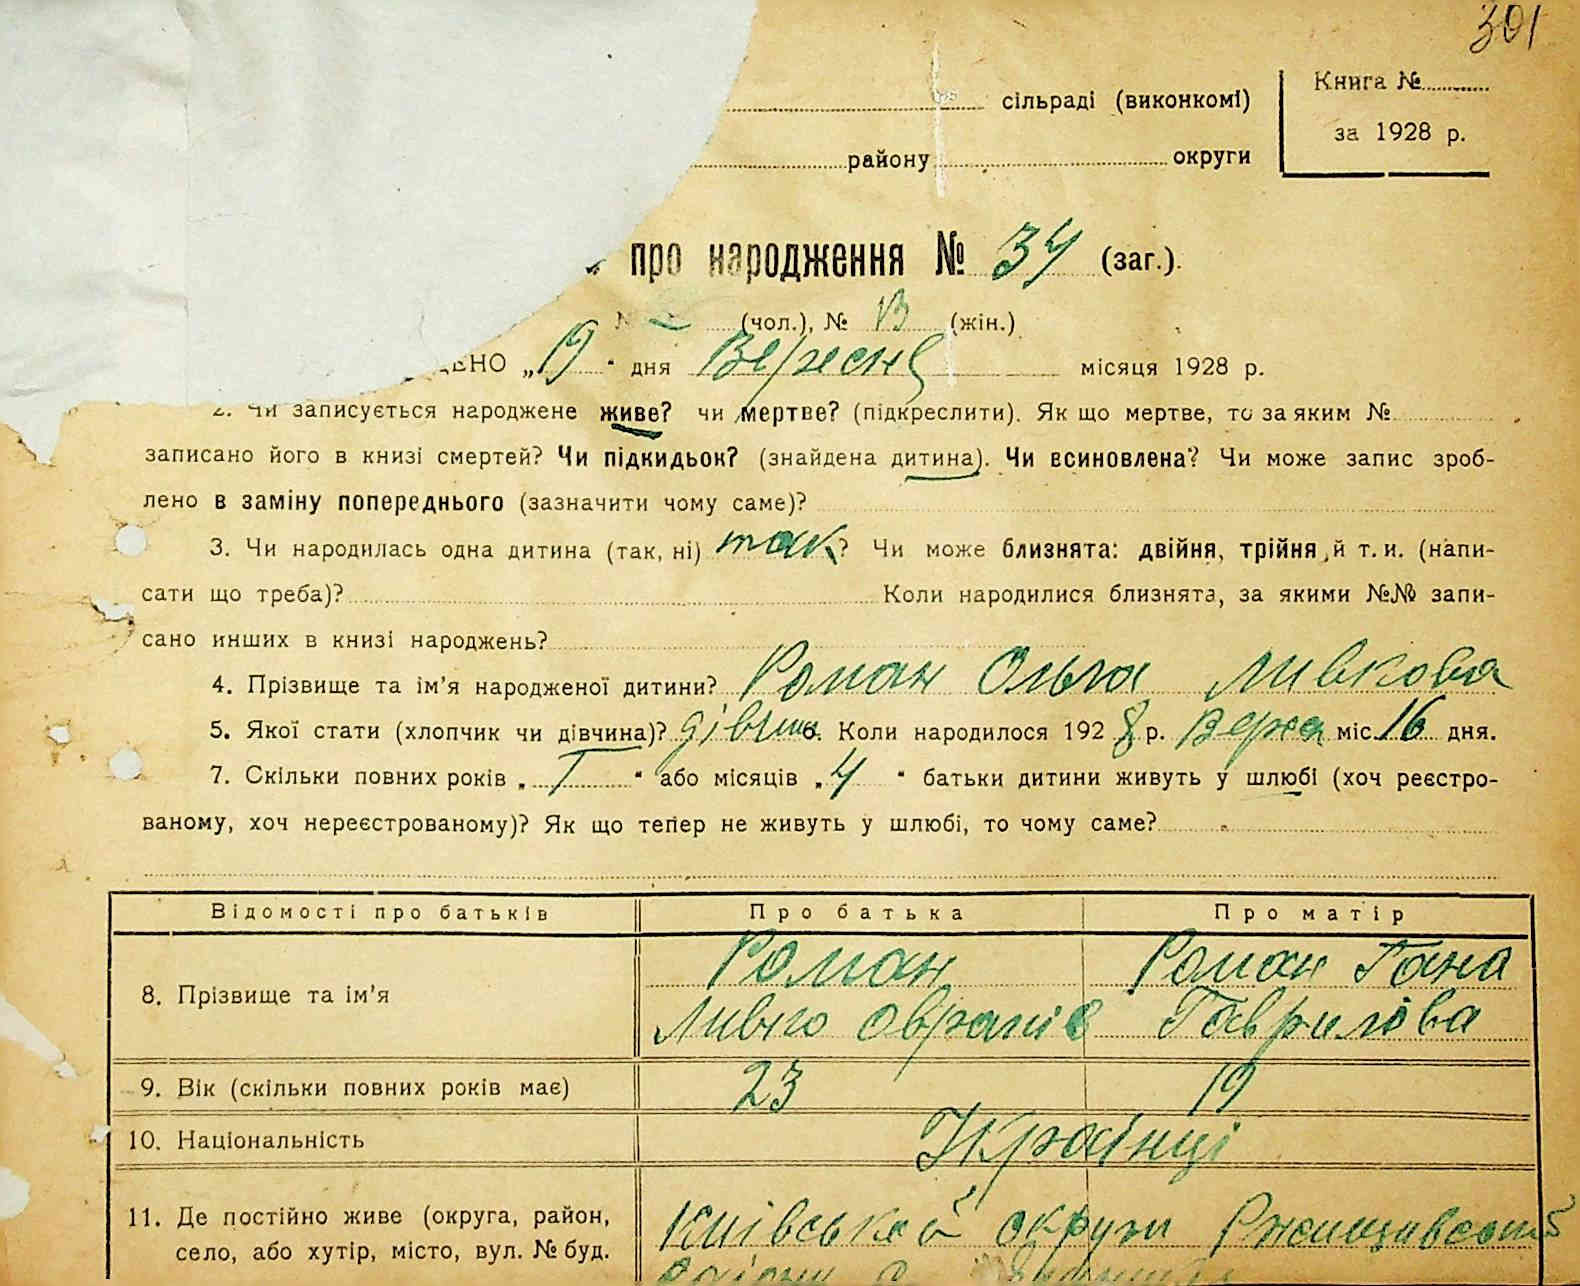 301
сільраді (виконкомі)
Книга №
району округи
за 1928 р.
про народження № 34 (заг.).
№ (чол.), № 13 (жін.)
ДЕНО „19“ дня Вересня місяця 1928 р.
2. Чи записується народжене живе? чи мертве? (підкреслити). Як що мертве, то за яким №
записано його в книзі смертей? Чи підкидьок? (знайдена дитина). Чи всиновлена? Чи може запис зроб-
лено в заміну попереднього (зазначити чому саме)?
3. Чи народилась одна дитина (так, ні) так? Чи може близнята: двійня, трійня й т. и. (напи-
сати що треба)? Коли народилися близнята, за якими №№ запи-
сано инших в книзі народжень?
4. Прізвище та ім’я народженої дитини? Роман Ольга Ливкова
5. Якої стати (хлопчик чи дівчина)? дівчина. Коли народилося 1928 р. міс. 16 дня.
7. Скільки повних років „ “ або місяців „4“ батьки дитини живуть у шлюбі (хоч реєстро-
ваному, хоч нереєстрованому)? Як що тепер не живуть у шлюбі, то чому саме?
Відомості про батьків Про батька Про матір
8. Прізвище та ім’я
Роман Роман Гана
Ливко Гаврилова
9. Вік (скільки повних років має) 23 19
10. Національність Українці
11. Де постійно живе (округа, район,
село, або хутір, місто, вул. № буд.
Київської округи